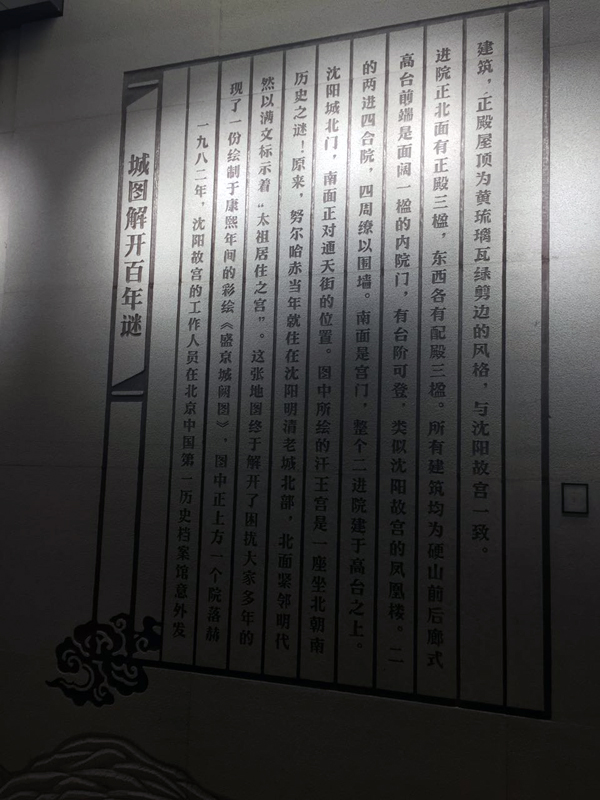 城图解开百年谜
一九八二年，沈阳故宫的工作人员在北京中国第一历史档案馆意外发
现了一份绘制于康熙年间的彩绘《盛京城阙图》，图中正上方一个院落赫
然以满文标示着“太祖居住之宫”。这张地图终于解开了困扰大家多年的
历史之谜！原来，努尔哈赤当年就住在沈阳明清老城北部，北面紧邻明代
沈阳城北门，南面正对通天街的位置。图中所绘的汗王宫是一座坐北朝南
的两进四合院，四周缭以围墙。南面是宫门，整个二进院建于高台之上。
高台前端是面阔一楹的内院门，有台阶可登，类似沈阳故宫的凤凰楼。二
进院正北面有正殿三楹，东西各有配殿三楹。所有建筑均为硬山前后廊式
建筑，正殿屋顶为黄琉璃瓦绿剪边的风格，与沈阳故宫一致。